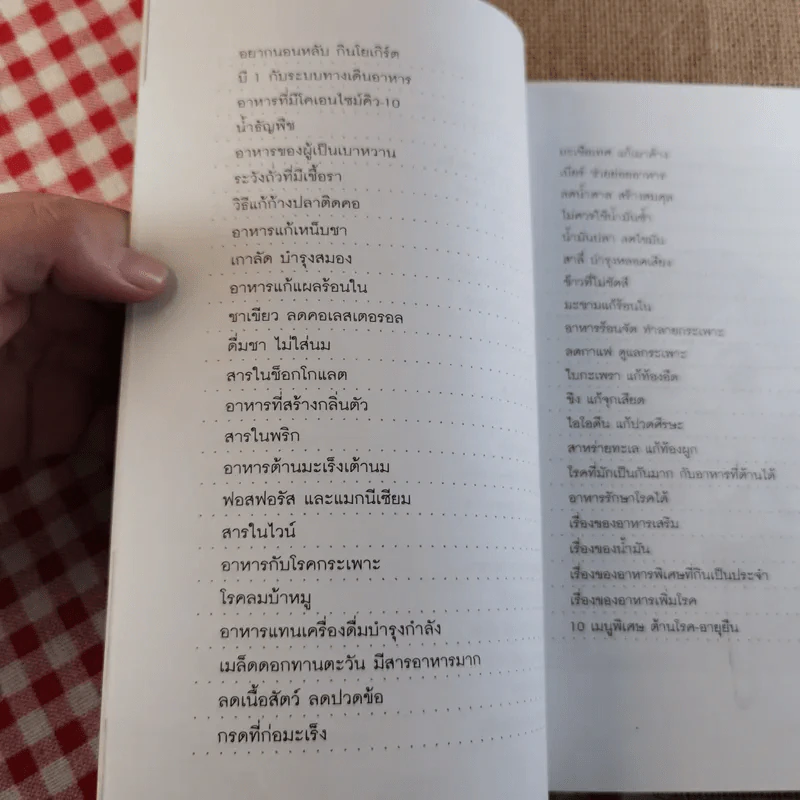 อยากนอนหลับ กินโยเกิร์ต
บี 1 กับระบบทางเดินอาหาร
อาหารที่มีโคเอนไซม์คิว-10
น้ำธัญพืช
อาหารของผู้เป็นเบาหวาน
ระวังถั่วที่มีเชื้อรา
วิธีแก้ก้างปลาติดคอ
อาหารแก้เหน็บชา
เกาลัด บำรุงสมอง
อาหารแก้แผลร้อนใน
ชาเขียว ลดคอเลสเตอรอล
ดื่มชา ไม่ใส่นม
สารในช็อกโกแลต
อาหารที่สร้างกลิ่นตัว
สารในพริก
อาหารต้านมะเร็งเต้านม
ฟอสฟอรัส และแมกนีเซียม
สารในไวน์
อาหารกับโรคกระเพาะ
โรคลมบ้าหมู
อาหารแทนเครื่องดื่มบำรุงกำลัง
เมล็ดดอกทานตะวัน มีสารอาหารมาก
ลดเนื้อสัตว์ ลดปวดข้อ
กรดที่ก่อมะเร็ง
มะเขือเทศ แก้เมาค้าง
เบียร์ ช่วยย่อยอาหาร
ลดน้ำตาล สร้างสมดุล
ไม่ควรใช้น้ำมันซ้ำ
น้ำมันปลา ลดไขมัน
สาลี่ บำรุงหลอดเสียง
ข้าวที่ไม่ขัดสี
มะขามแก้ร้อนใน
อาหารร้อนจัด ทำลายกระเพาะ
ลดกาแฟ ดูแลกระเพาะ
ใบกะเพรา แก้ท้องอืด
ขิง แก้จุกเสียด
ไอโอดีน แก้ปวดศีรษะ
สาหร่ายทะเล แก้ท้องผูก
โรคที่มักเป็นกันมาก กับอาหารที่ต้านได้
อาหารรักษาโรคได้
เรื่องของอาหารเสริม
เรื่องของน้ำมัน
เรื่องของอาหารพิเศษที่กินเป็นประจำ
เรื่องของอาหารเพิ่มโรค
10 เมนูพิเศษ ต้านโรค-อายุยืน